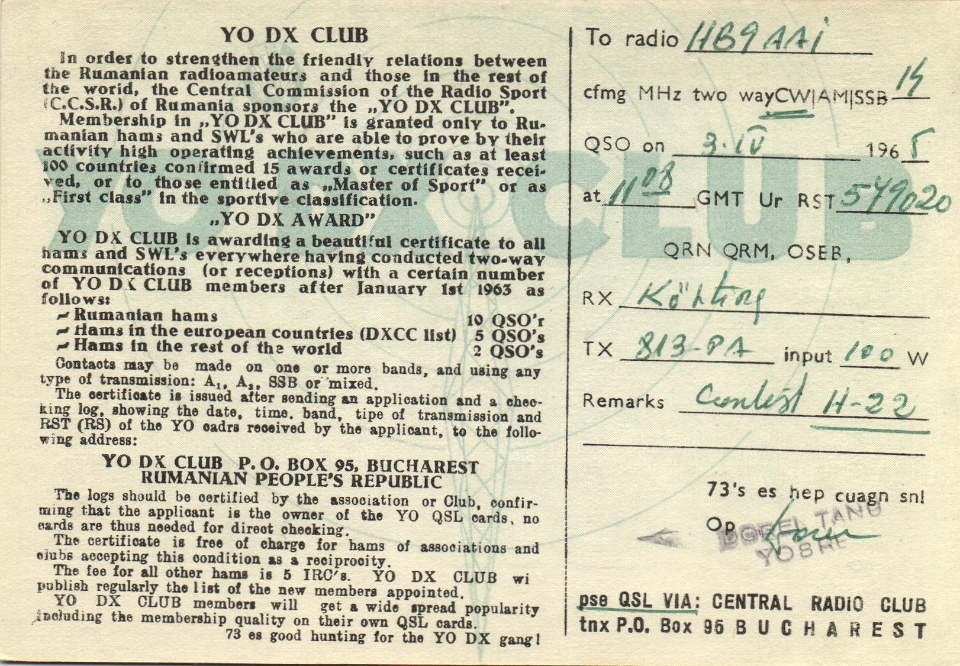 YO DX CLUB
In order to strengthen the friendly relations between
the Rumanian radioamateurs and those in the rest of
the world, the Central Commission of the Radio Sport
(C.C.S.R.) of Rumania sponsors the „YO DX CLUB”.
Membership in „YO DX CLUB” is granted only to Ru-
manian hams and SWL's who are able to prove by their
activity high operating achievements, such as at least
100 countries confirmed 15 awards or certificates recei-
ved, or to those entitled as „Master of Sport” or as
„First class” in the sportive classification.
„YO DX AWARD”
YO DX CLUB is awarding a beautiful certificate to all
hams and SWL's everywhere having conducted two-way
communications (or receptions) with a certain number
of YO DX CLUB members after January 1st 1963 as
follows:
~ Rumanian hams 10 QSO'r
~ Hams in the european countries (DXCC list) 5 QSO's
~ Hams in the rest of the world 2 QSO's
Contacts may be made on one or more bands, and using any
type of transmission: A₁, A₃, SSB or mixed.
The certificate is issued after sending an application and a chec-
king log, showing the date, time, band, tipe of transmission and
RST (RS) of the YO cadrs received by the applicant, to the follo-
wing address:
YO DX CLUB P.O. BOX 95, BUCHAREST
RUMANIAN PEOPLE'S REPUBLIC
The logs should be certified by the association or Club, confir-
ming that the applicant is the owner of the YO QSL cards, no
cards are thus needed for direct checking.
The certificate is free of charge for hams of associations and
clubs accepting this condition as a reciprocity.
The fee for all other hams is 5 IRC's. YO DX CLUB wi
publish regularly the list of the new members appointed.
YO DX CLUB members will get a wide spread popularity
including the membership quality on their own QSL cards.
73 es good hunting for the YO DX gang!
YO DX CLUB
To radio HB9AAi
cfmg MHz two way CW|AM|SSB 14
QSO on 3.IV 1965
at 1108 GMT Ur RST 579020
QRN QRM, OSEB,
RX
TX 813-PA input 100 W
Remarks Contest H-22
73's es hep cuagn snl
Op
pse QSL VIA: CENTRAL RADIO CLUB
tnx P.O. Box 95 BUCHAREST